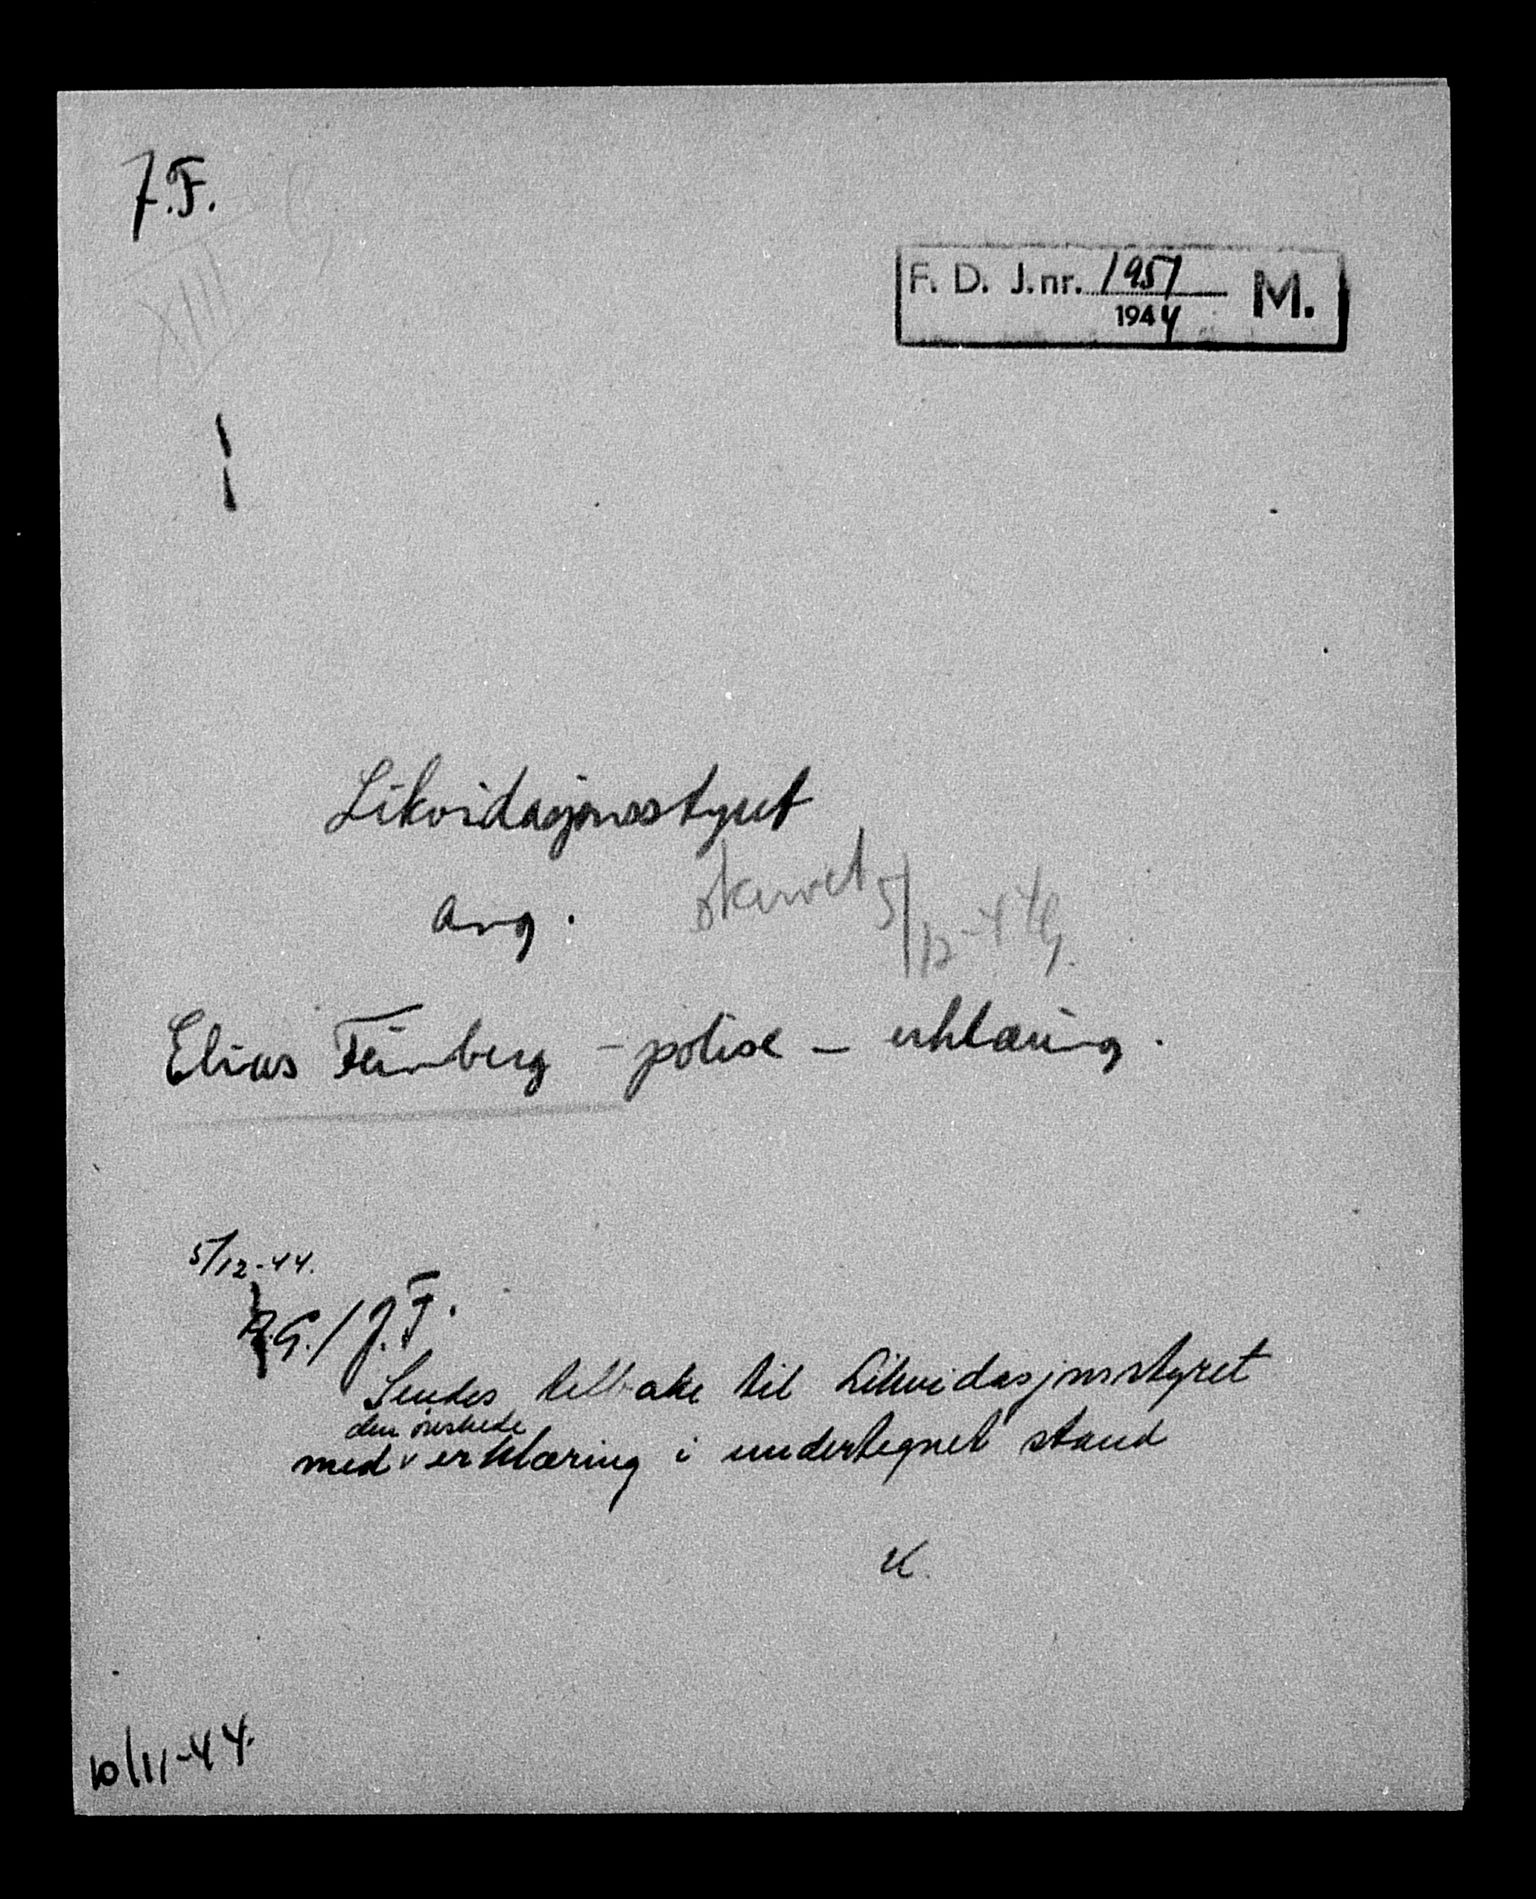 7.F.
XIII
F. D. J.nr. 1951 M.
1944
Likvidasjonsstyret
ang.
skrevet 5/12-44
Elias Feinberg - polise - erklæring.
5/12-44.
G./J.F.
Sendes tilbake til Likvidasjonsstyret
den ønskede
med v erklæring i undertegnet stand
K.
10/11-44.